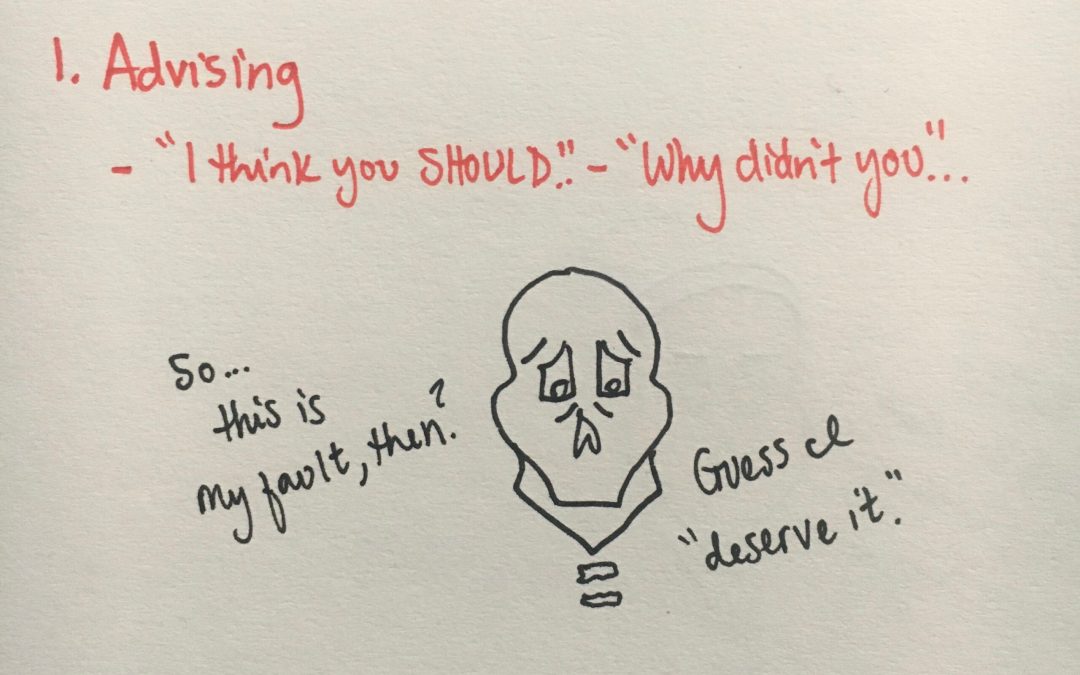 1. Advising
- "I think you SHOULD".. - "Why didn't you"...
So...
this is
my fault, then?
Guess I
"deserve it."